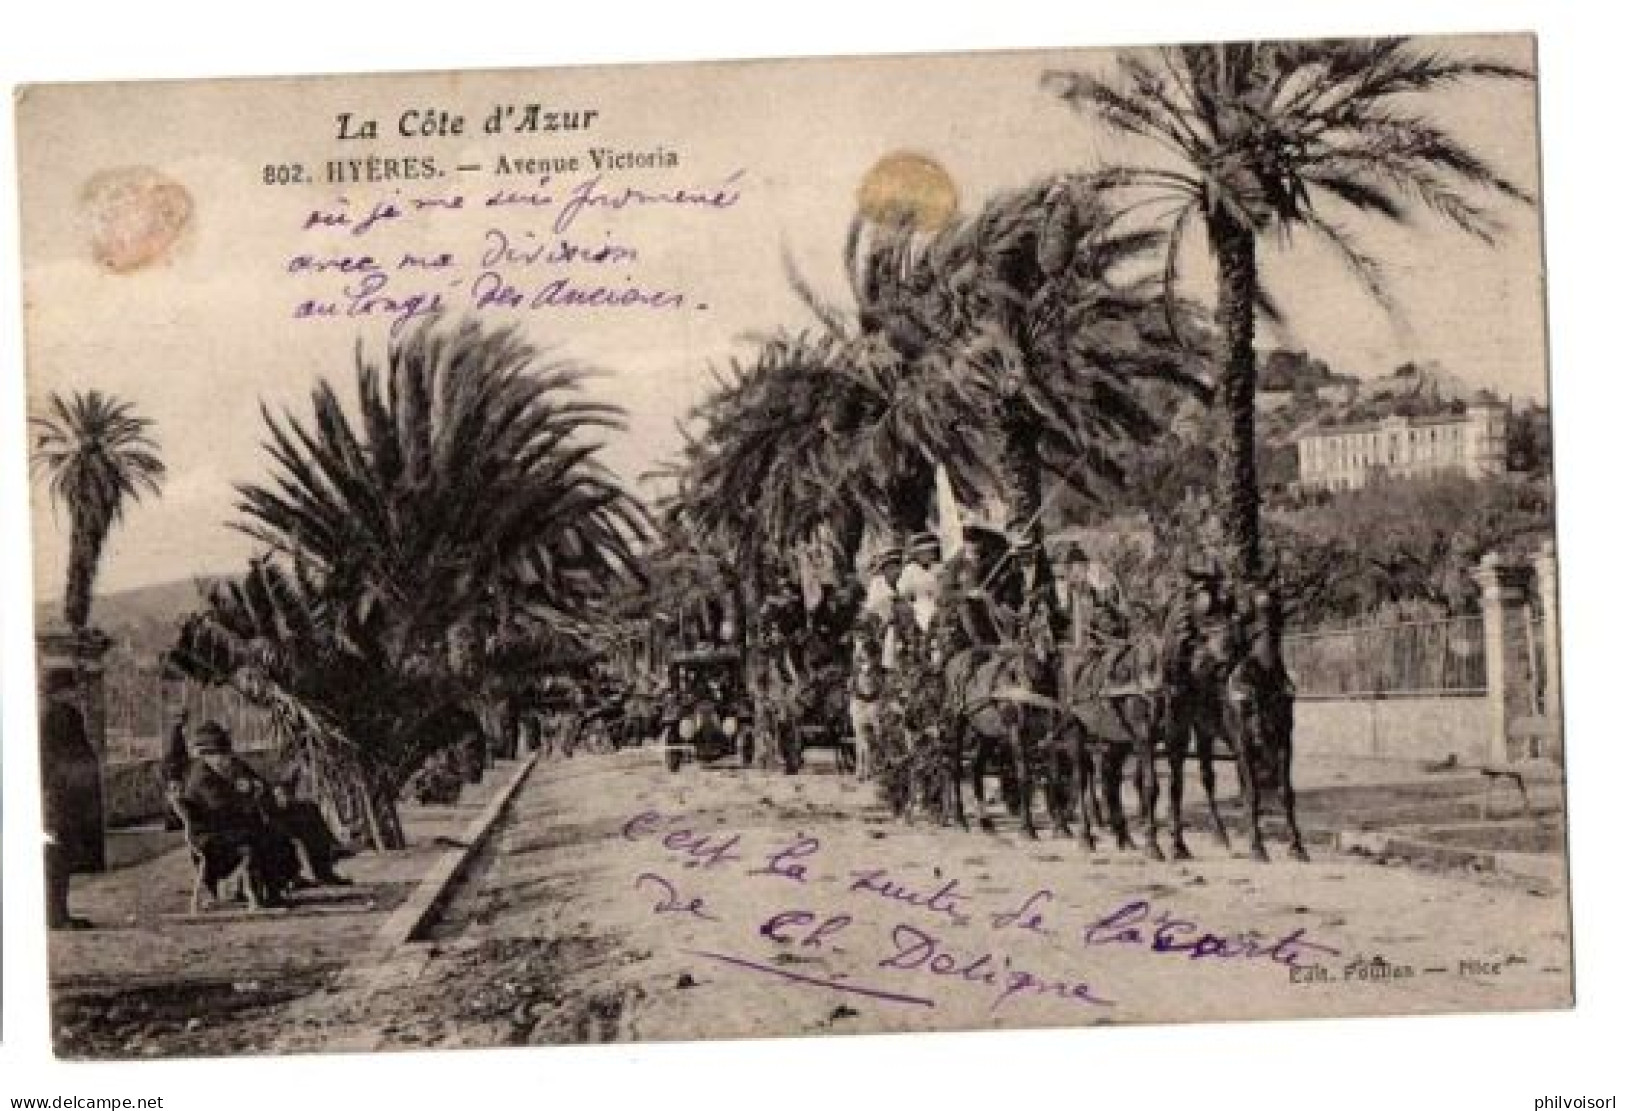 La Côte d'Azur
802. HYÈRES. — Avenue Victoria
où je me suis promené
avec ma Division
au Congé des Anciens.
c'est la suite de la carte
de Ch. Deligne
Edit. — Nice
philvoisorl